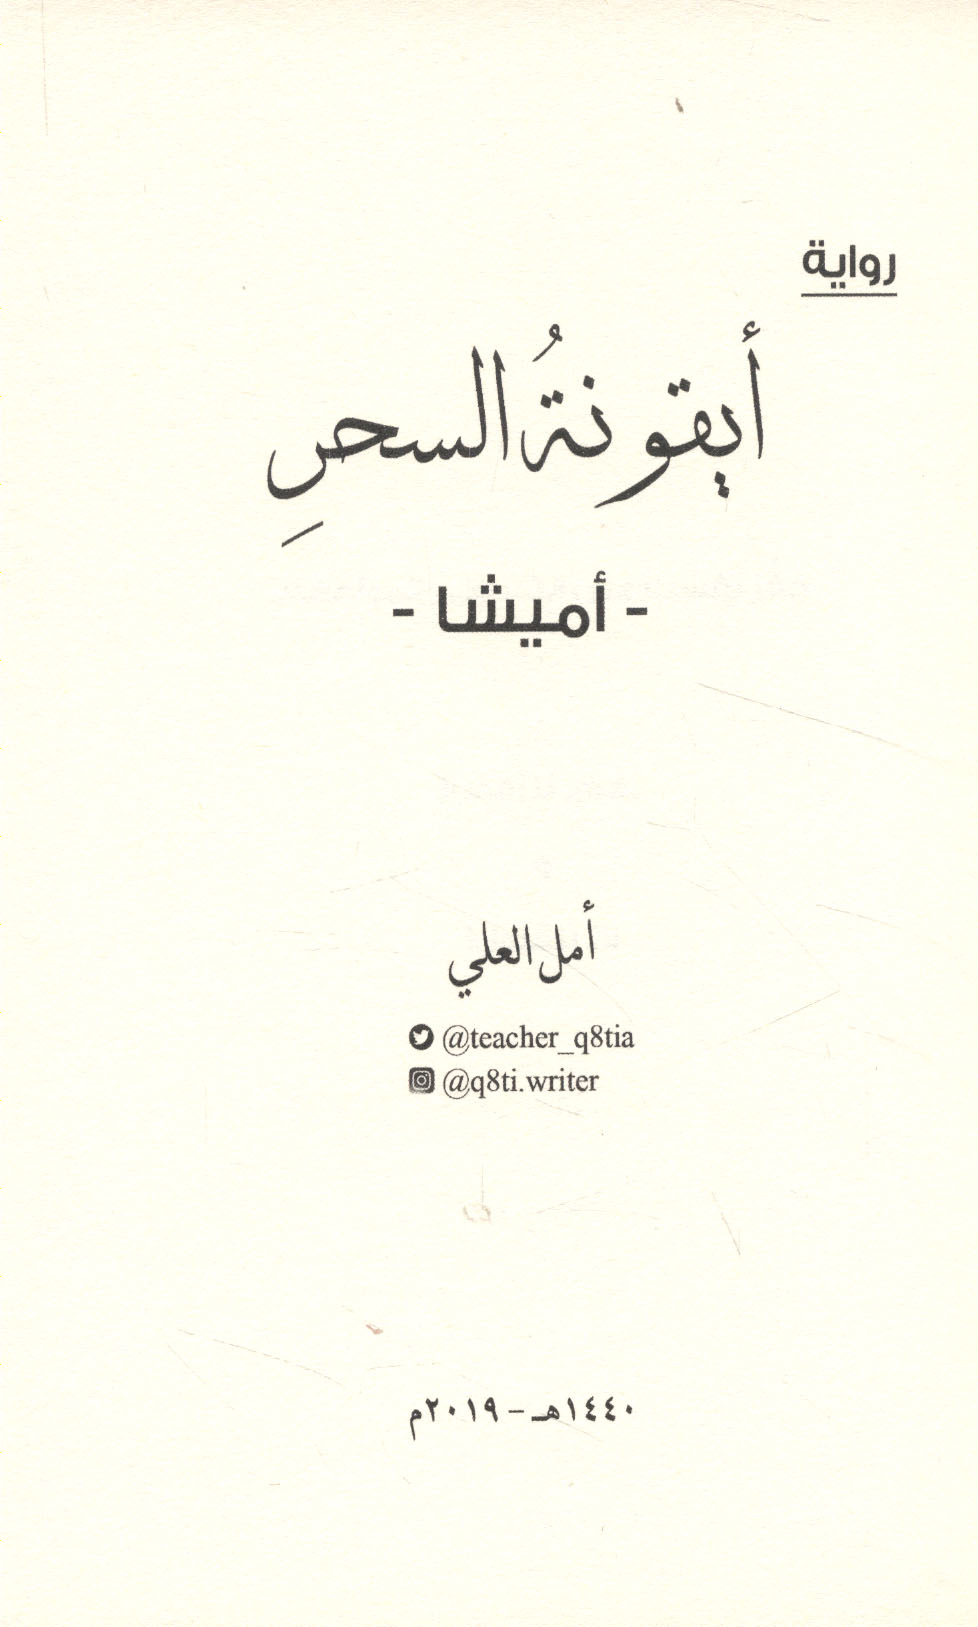 رواية
أيقونةُ السحرِ
- أميشا -
أمل العلي
@teacher_q8tia
@q8ti.writer
١٤٤٠هـ - ٢٠١٩م